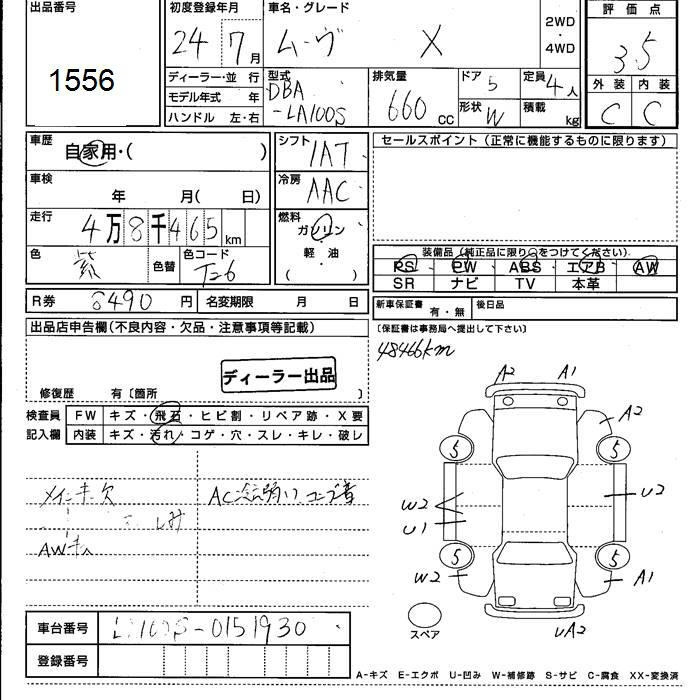 出品番号
1556
初度登録年月
24 7月
車名・グレード
ムーヴ X
2WD
・
4WD
評価点
3.5
外装 内装
C C
ディーラー・並行
モデル年式 年
ハンドル 左・右
型式
DBA
-LA100S
排気量
660 cc
ドア 5
定員 4人
形状 W
積載 kg
車歴
自家用・( )
シフト
IAT
セールスポイント (正常に機能するものに限ります)
車検
年 月( 日)
冷房
AAC
走行
4万8千465km
燃料
ガソリン
・
軽油
( )
色
紫
色替
色コード
T-6
装備品 (純正品に限り○をつけてください)
PS PW ABS エアB AW
SR ナビ TV 本革
R券 8490円
名変期限 月 日
新車保証書 有・無
後日品
(保証書は事務局へ提出して下さい)
48466km
出品店申告欄(不良内容・欠品・注意事項等記載)
ディーラー出品
修復歴 有〔箇所 〕
検査員
記入欄
FW キズ・飛石・ヒビ割・リペア跡・X要
内装 キズ・汚れ・コゲ・穴・スレ・キレ・破レ
A2 A1
A2
5 5
W2
U1
U2
5 5
W2 A1
UA2
スペア
メインキー欠
AC
AWキズ
車台番号 LA100S-0151930
登録番号
A-キズ E-エクボ U-凹み W-補修跡 S-サビ C-腐食 XX-変換済